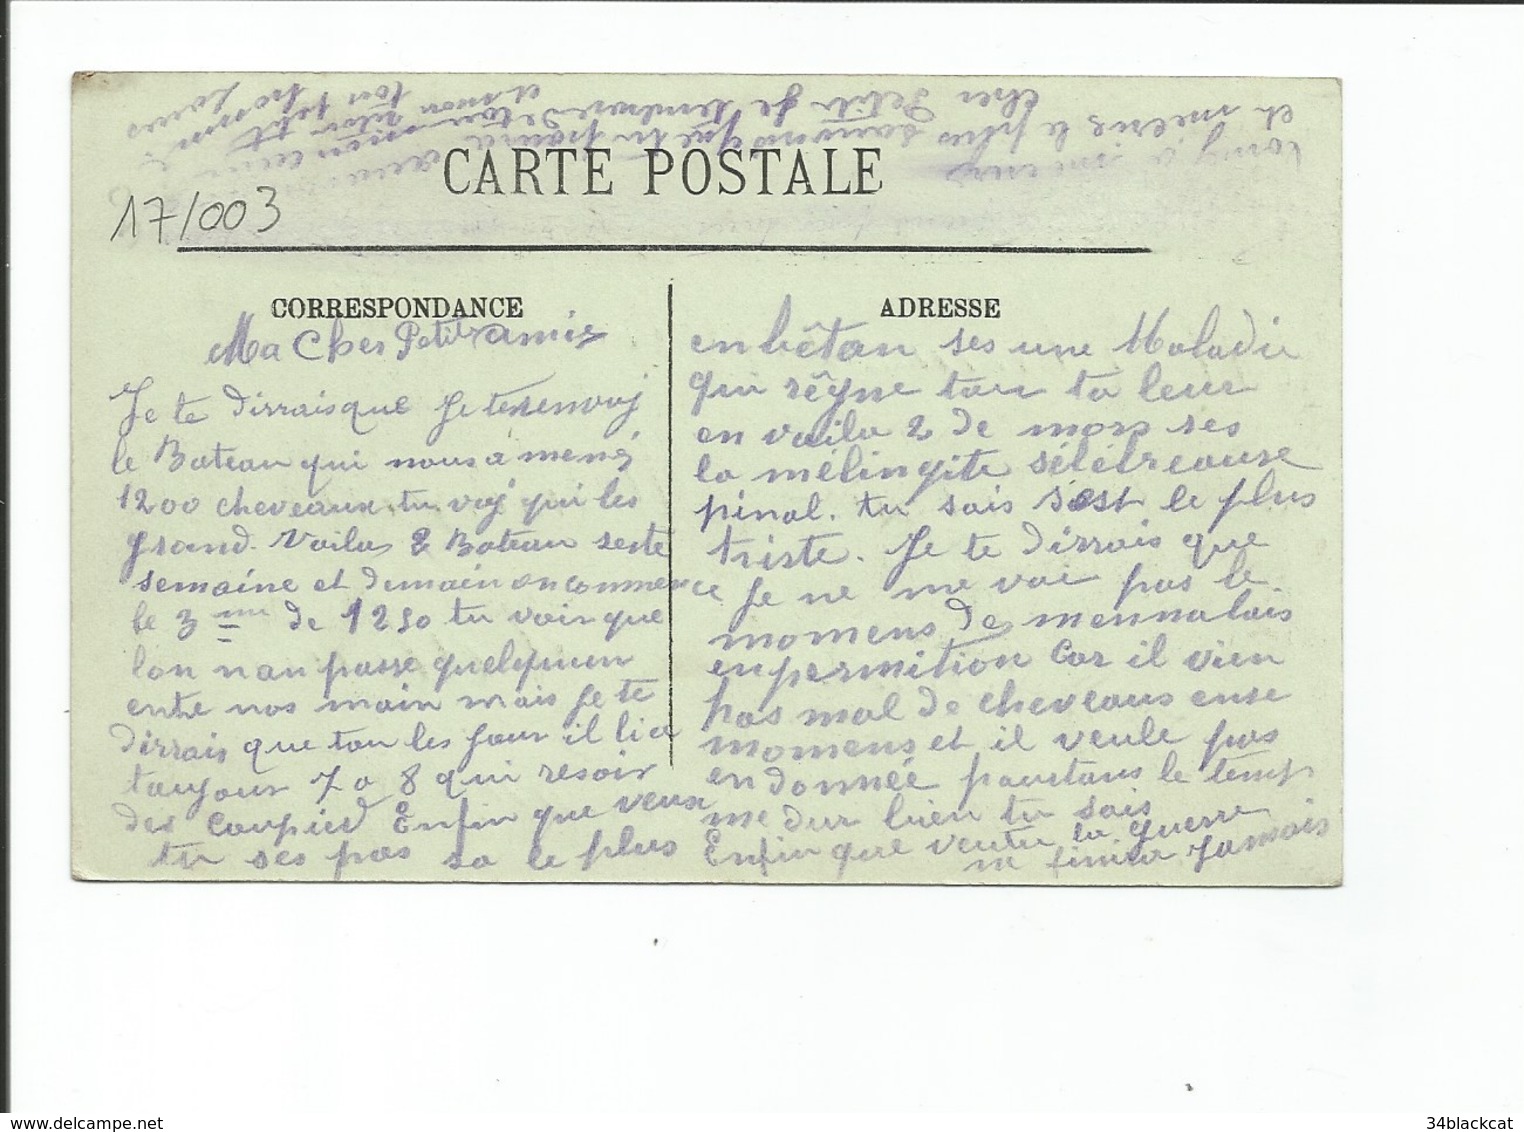 17/003
CARTE POSTALE
CORRESPONDANCE
Ma Cher Petite amie
Je te dirrais que Je te
le Bateau qui nous a menés
1200 cheveaux. tu voy qui les
grand. Voila 2 Bateau sette
semaine et demain on commence
le 3 me de 1250 tu vois que
lon nan passe quelquun
entre nos main mais Je te
dirrais que tou les Jour il li a
toujour 7 a 8 qui resoir
des Coupied Enfin que veux
tu ses pas sa le plus
ADRESSE
enbêtan ses une Maladie
qui rêgne tou ta leur
en voila 2 de mors ses
la mélingite sélébreause
pinal. tu sais s'est le plus
triste. Je te dirrais que
Je ne me voie pas le
momens de mennalais
enpermition Car il vien
pas mal de cheveaus ense
momens et il veule pas
endonnée pourtans le temp
me dur bien tu sais
Enfin que ventu la guerre
ne finira Jamais
et
le plus
que tu
Cher Petite Je
de ton
et mon
ton petit
34blackcat